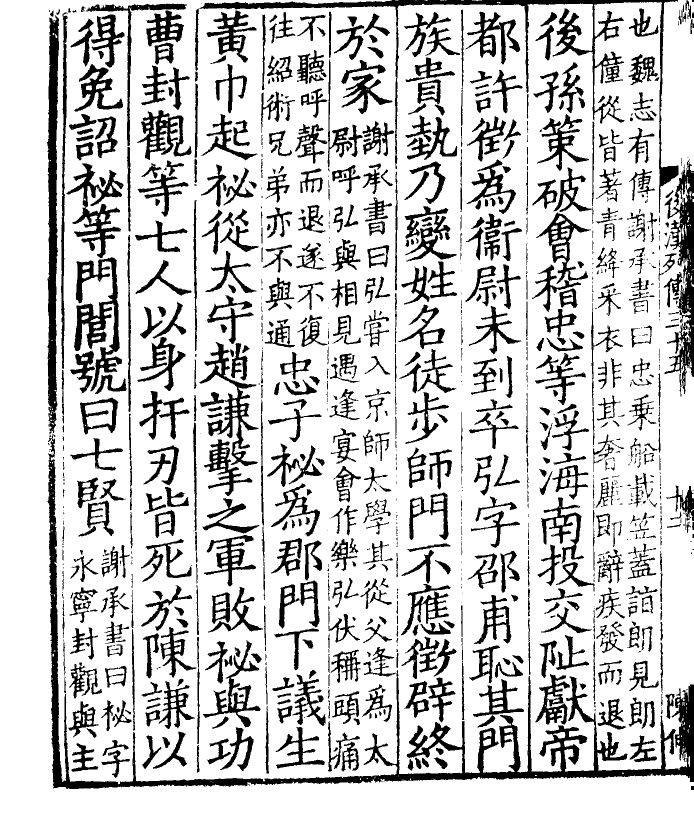 後漢列傳三十五
也魏志有傳謝承書曰忠乘船載笠蓋詣朗見朗左
右僮從皆著青絳采衣非其奢麗即辭疾發而退也
後孫策破會稽忠等浮海南投交阯獻帝
都許徵爲衞尉未到卒弘字邵甫恥其門
族貴埶乃變姓名徒步師門不應徵辟終
於家
謝承書曰弘嘗入京師太學其從父逢爲太
尉呼弘與相見遇逢宴會作樂弘伏稱頭痛
不聽呼聲而退遂不復
往紹術兄弟亦不與通
忠子祕爲郡門下議生
黃巾起祕從太守趙謙擊之軍敗祕與功
曹封觀等七人以身扞刃皆死於陳謙以
得免詔祕等門閭號曰七賢
謝承書曰祕字
永寧封觀與主